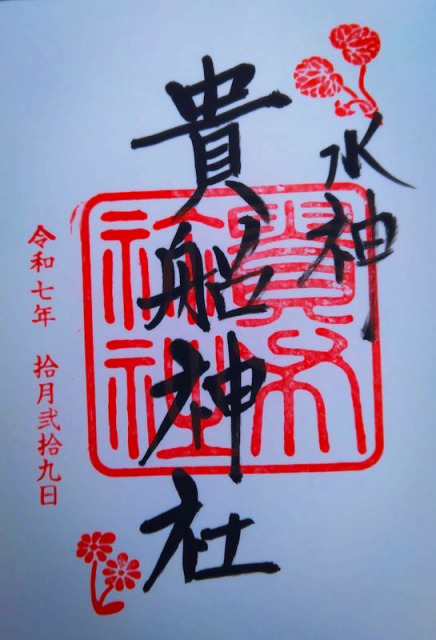 水神
貴船神社
令和七年 拾月弐拾九日